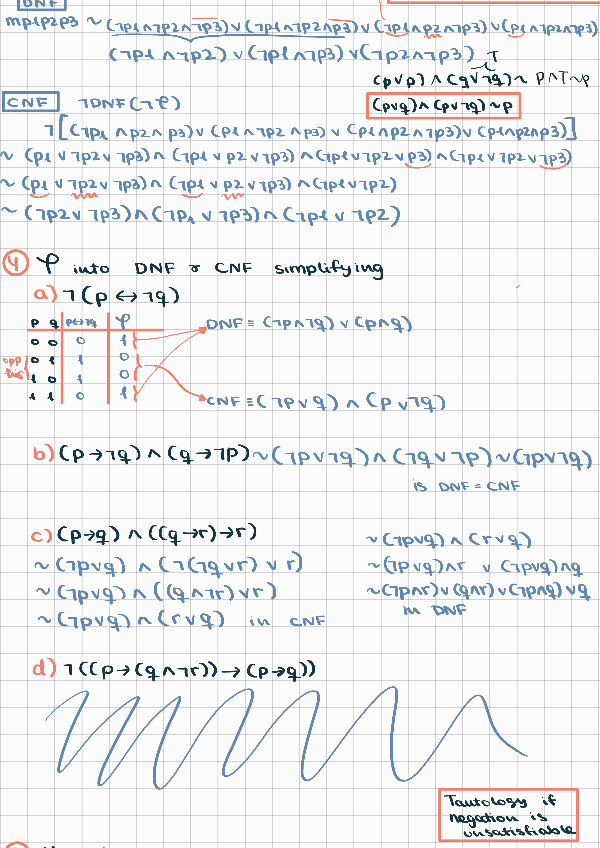 DNF
mp1p2p3 ~ (¬p1∧¬p2∧¬p3)∨(¬p1∧¬p2∧p3)∨(¬p1∧p2∧¬p3)∨(p1∧¬p2∧¬p3)
(¬p1∧¬p2)∨(¬p1∧¬p3)∨(¬p2∧¬p3)
T
(p∨p)∧(q∨¬q)~ p∧T~p
CNF ¬DNF(¬φ)
(p∨q)∧(p∨¬q)~p
¬[(¬p1∧p2∧p3)∨(p1∧¬p2∧p3)∨(p1∧p2∧¬p3)∨(p1∧p2∧p3)]
~ (p1∨¬p2∨¬p3)∧(¬p1∨p2∨¬p3)∧(¬p1∨¬p2∨p3)∧(¬p1∨¬p2∨¬p3)
~ (p1∨¬p2∨¬p3)∧(¬p1∨p2∨¬p3)∧(¬p1∨¬p2)
~ (¬p2∨¬p3)∧(¬p1∨¬p3)∧(¬p1∨¬p2)
4 φ into DNF & CNF simplifying
a) ¬(p↔¬q)
p q p↔¬q φ
0 0 0 1
0 1 1 0
1 0 1 0
1 1 0 1
DNF ≡ (¬p∧¬q)∨(p∧q)
CNF ≡ (¬p∨q)∧(p∨¬q)
b) (p→¬q)∧(q→¬p) ~ (¬p∨¬q)∧(¬q∨¬p) ~ (¬p∨¬q)
is DNF = CNF
c) (p→q)∧((q→r)→r)
~ (¬p∨q)∧(¬(¬q∨r)∨r)
~ (¬p∨q)∧((q∧¬r)∨r)
~ (¬p∨q)∧(r∨q) in CNF
~ (¬p∨q)∧(r∨q)
~ (¬p∨q)∧r ∨ (¬p∨q)∧q
~ (¬p∧r)∨(q∧r)∨(¬p∧q)∨q
in DNF
d) ¬((p→(q∧¬r))→(p→q))
Tautology if
negation is
unsatisfiable